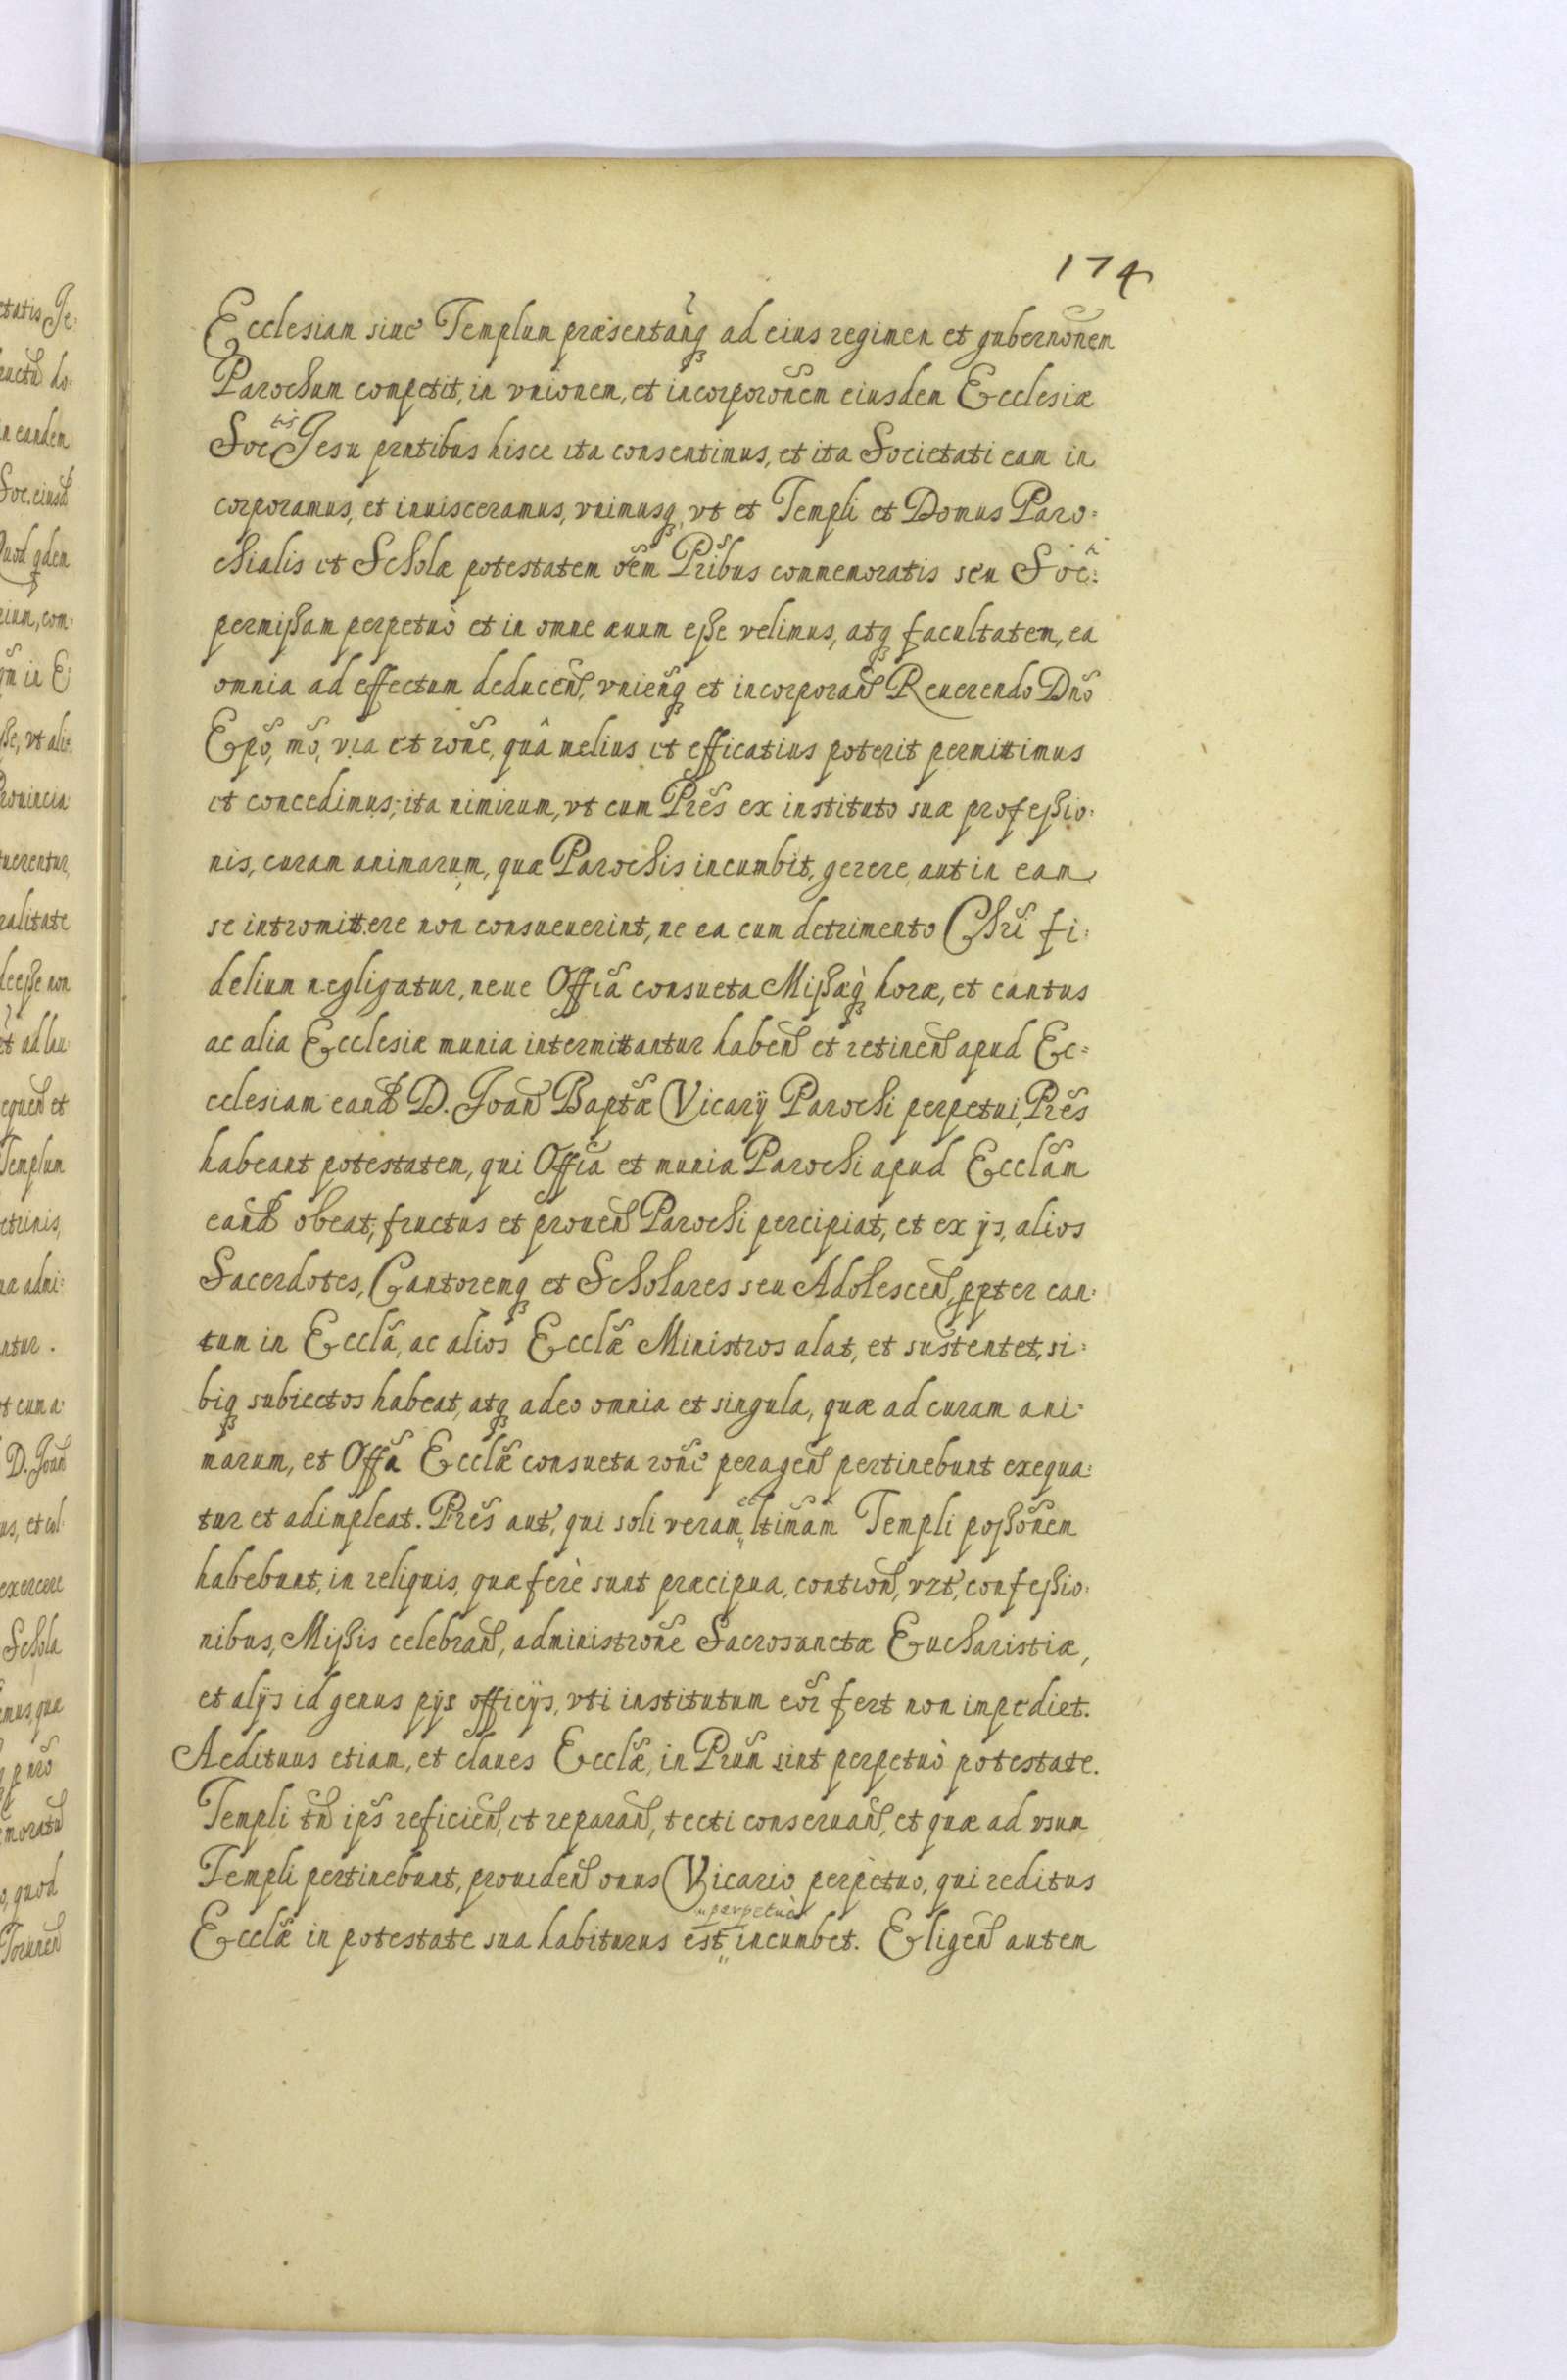 174
Ecclesiam siue Templum præsentanq̃ ad eius regimen et gubernõnem
Parochum competit, in vnionem, et incorporõnem eiusdem Ecclesiæ
Soctis Jesu prntibus hisce ita consentimus, et ita Societati eam in
corporamus, et inuisceramus, vnimusq, vt et Templi et Domus Paro=
chialis et Scholæ potestatem oẽm Pribus commemoratis seu Soc:
permissam perpetuò et in omne æuum esse velimus, atq facultatem, ea
omnia ad effectum deducen̄, vnienq̃ et incorporan̄ Reuerendo Dño
Epõ, mõ, via et rõne, quâ melius et efficatius poterit permittimus
et concedimus; ita nimirum, vt cum Prẽs ex instituto suæ professio=
nis, curam animarum, quæ Parochis incumbit, gerere, aut in eam
se intromittere non consueuerint, ne ea cum detrimento Chrĩ fi=
delium negligatur, neue Offĩa consueta Missæq̀ horæ, et cantus
ac alia Ecclesiæ munia intermittantur haben̄ et retinen̄ apud Ec=
cclesiam eand̄ D. Joan̄ Baptæ Vicarÿ Parochi perpetui, Prẽs
habeant potestatem, qui Offĩa et munia Parochi apud Ecclãm
eand̄ obeat, fructus et prouen̄ Parochi percipiat, et ex ÿs, alios
Sacerdotes, Cantoremq et Scholares seu Adolescen̄, ppter can=
tum in Ecclã, ac alios Ecclæ̃ Ministros alat, et sustentet, si=
biq subiectos habeat, atq adeo omnia et singula, quæ ad curam ani=
marum, et Offã Ecclæ̃ consueta rõne peragen̄ pertinebunt exequa=
tur et adimpleat. Prẽs aut̃, qui soli veram et ltimam Templi possõnem
habebunt, in reliquis, quæ ferè sunt præcipua, contion̄, vzt, confessio=
nibus, Missis celebran̄, administrõne Sacrosanctæ Eucharistiæ,
et alÿs id genus pÿs officÿs, vti institutum eor̃ fert non impediet.
Aedituus etiam, et claues Ecclæ̃, in Prum̃ sint perpetuò potestate.
Templi tñ ips̃ reficien̄, et reparan̄, tecti conseruan̄, et quæ ad vsum
Templi pertinebunt, prouiden̄ onus Vicario perpetuo, qui reditus
Ecclæ̃ in potestate sua habiturus est perpetuò incumbet. Eligen̄ autem